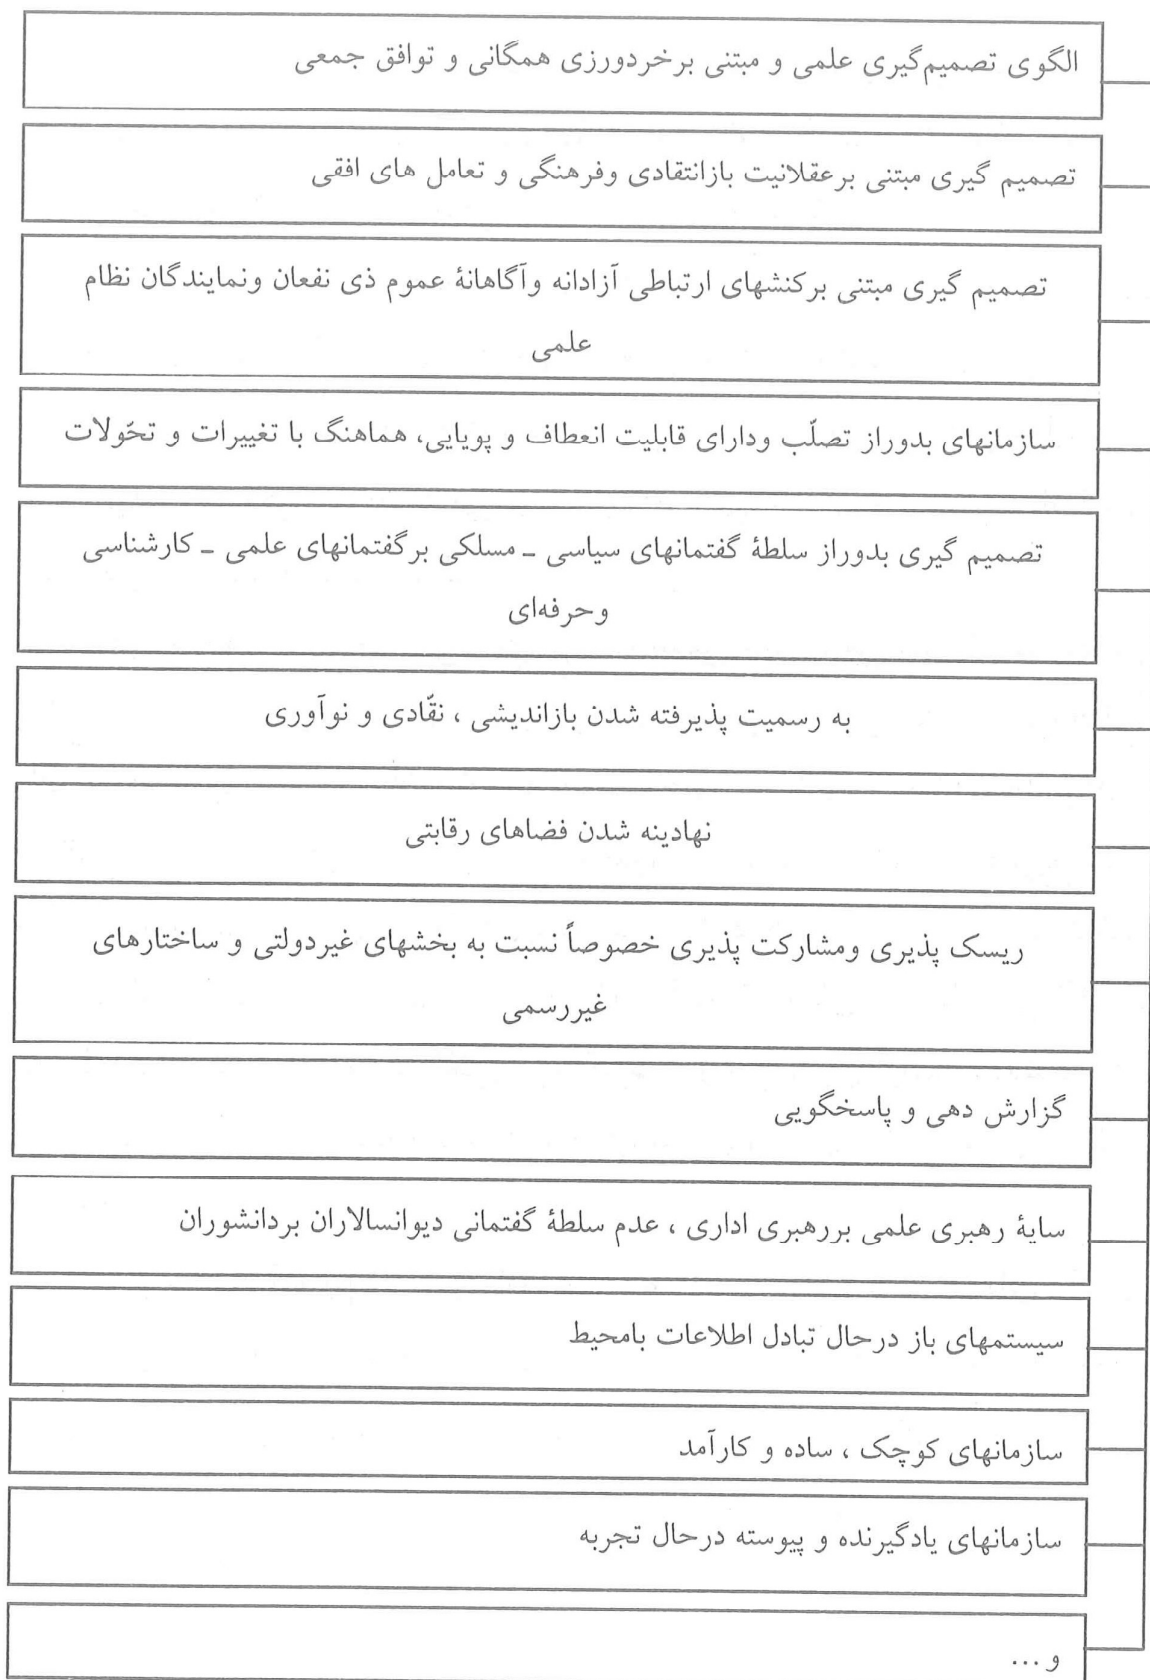 الگوی تصمیم‌گیری علمی و مبتنی برخردورزی همگانی و توافق جمعی
تصمیم گیری مبتنی برعقلانیت بازانتقادی وفرهنگی و تعامل های افقی
تصمیم گیری مبتنی برکنشهای ارتباطی آزادانه وآگاهانهٔ عموم ذی نفعان ونمایندگان نظام
علمی
سازمانهای بدوراز تصلّب ودارای قابلیت انعطاف و پویایی، هماهنگ با تغییرات و تحّولات
تصمیم گیری بدوراز سلطهٔ گفتمانهای سیاسی ـ مسلکی برگفتمانهای علمی ـ کارشناسی
وحرفه‌ای
به رسمیت پذیرفته شدن بازاندیشی ، نقّادی و نوآوری
نهادینه شدن فضاهای رقابتی
ریسک پذیری ومشارکت پذیری خصوصاً نسبت به بخشهای غیردولتی و ساختارهای
غیررسمی
گزارش دهی و پاسخگویی
سایهٔ رهبری علمی بررهبری اداری ، عدم سلطهٔ گفتمانی دیوانسالاران بردانشوران
سیستمهای باز درحال تبادل اطلاعات بامحیط
سازمانهای کوچک ، ساده و کارآمد
سازمانهای یادگیرنده و پیوسته درحال تجربه
و ...